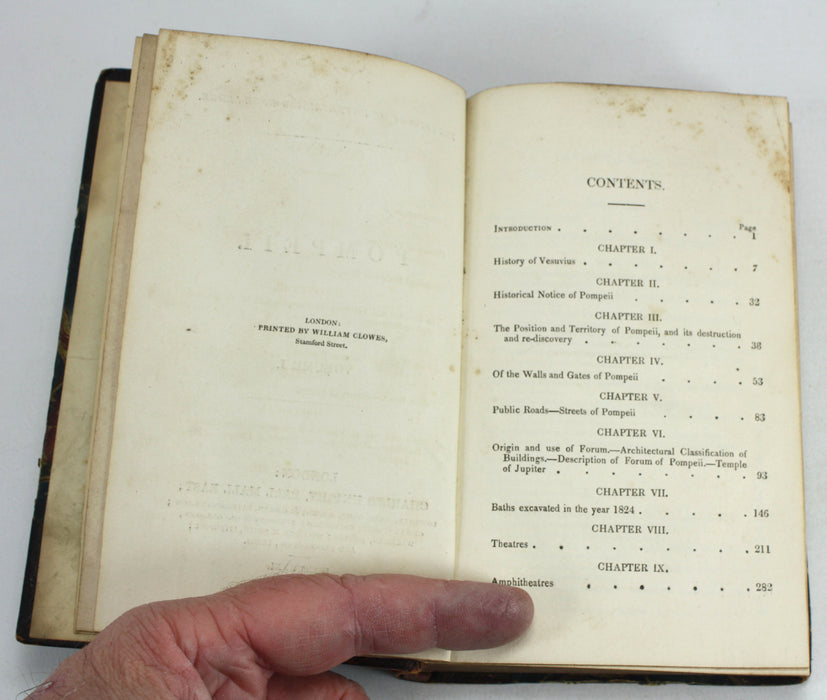 LONDON:
PRINTED BY WILLIAM CLOWES,
Stamford Street.
CONTENTS.
Page
INTRODUCTION . . . . . . . . 1
CHAPTER I.
History of Vesuvius . . . . . . . 7
CHAPTER II.
Historical Notice of Pompeii . . . . . 32
CHAPTER III.
The Position and Territory of Pompeii, and its destruction
and re-discovery . . . . . . . 38
CHAPTER IV.
Of the Walls and Gates of Pompeii . . . . 53
CHAPTER V.
Public Roads—Streets of Pompeii . . . . 83
CHAPTER VI.
Origin and use of Forum.—Architectural Classification of
Buildings.—Description of Forum of Pompeii.—Temple
of Jupiter . . . . . . . . 93
CHAPTER VII.
Baths excavated in the year 1824 . . . . . 146
CHAPTER VIII.
Theatres . . . . . . . . . 211
CHAPTER IX.
Amphitheatres . . . . . . . 282